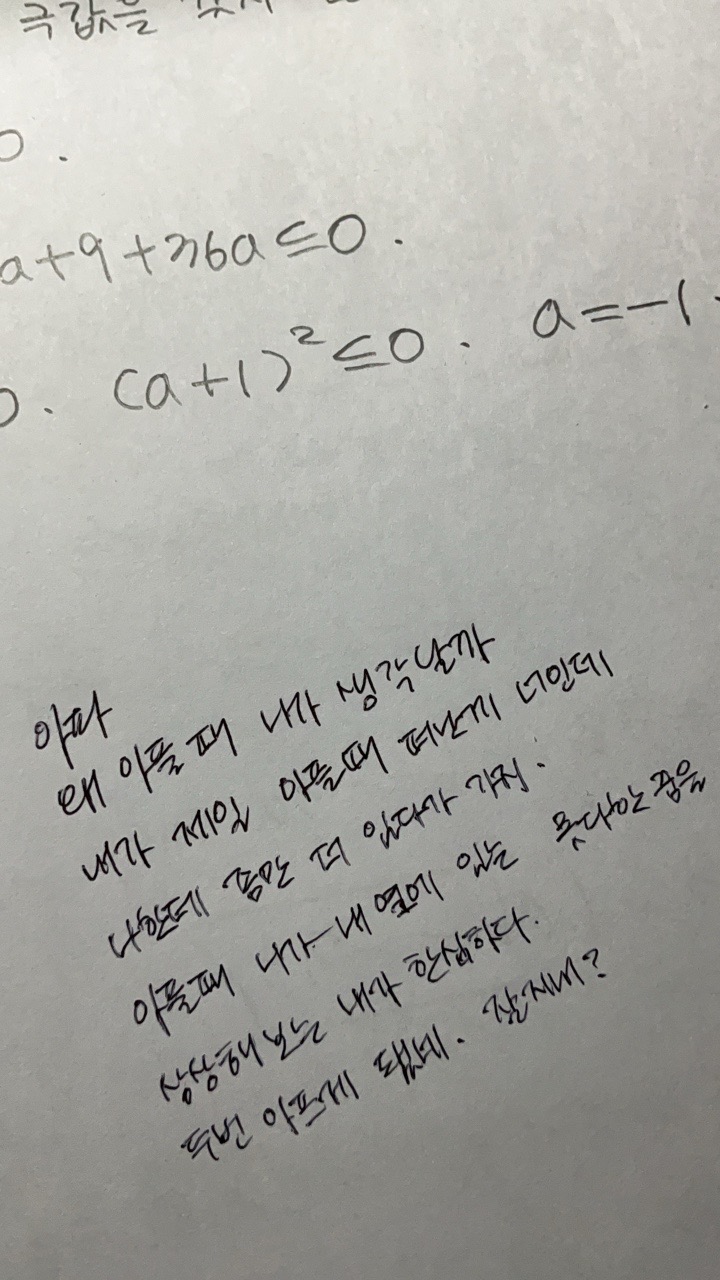 극값을
0.
a+9+36a≤0.
0. (a+1)²≤0. a=-1.
아파
왜 아플때 너가 생각날까
내가 제일 아플때 떠난게 너인데
나한테 좀만 더 있다가 가지.
아플때 너가 내 옆에 있는 못다한 꿈을
상상해보는 내가 한심하다.
두번 아프게 됐네. 잘지내?